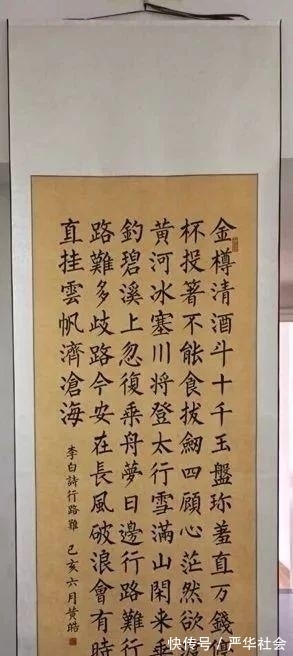 金樽清酒斗十千玉盤珎羞直万錢停
杯投箸不能食拔劒四顧心茫然欲渡
黄河冰塞川將登太行雪滿山閑来垂
釣碧溪上忽復乘舟夢日邊行路難行
路難多歧路今安在長風破浪會有時
直挂雲帆濟滄海
李白詩行路難 己亥六月黄皓
快传号／严华社会